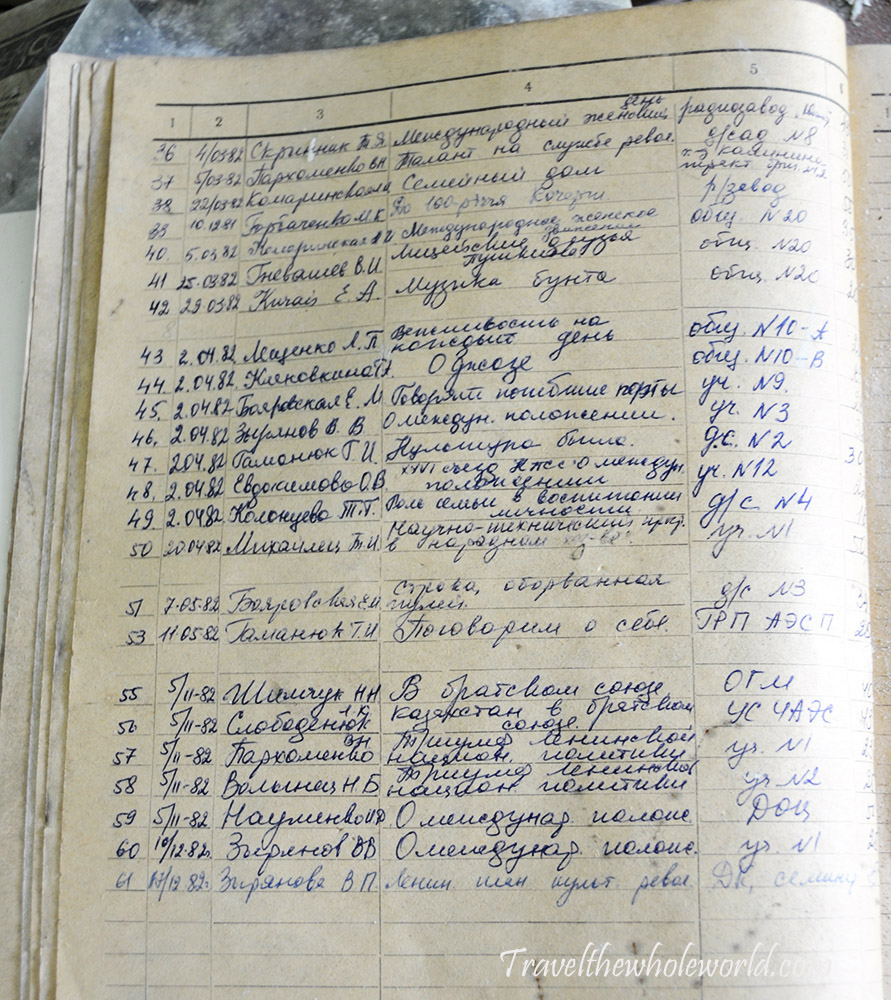 1 2 3 4 5
36 4/03-82 Скрипник Т.Я. Международный женский день радиозавод
37 5/03-82 Пархоменко ВН Талант на службе револ. д/сад N8
38 22/03-82 Комаринская Семейный дом
39 10.12.81 Горбаченко М.К До 100-річчя р/завод
40. 5.03.82 Международное женское движение общ. N20
41 25.03.82 Гневашев В.И. Лицейские друзья Пушкина общ. N20
42 29.03.82 Кичай Е А. Музыка бунта общ. N20
43 2.04.82 Лещенко Л.П Вежливость на каждый день общ. N10-А
44. 2.04.82. О джазе общ. N10-В
45. 2.04.82 Бояровская Е. М Говорят погибшие поэты уч. N9.
46. 2.04.82 Зырянов В. В О междун. положении. уч. N3
47. 2.04.82 Гаманюк Г.И. Культура быта. д.с. N2
48. 2.04.82 Евдокимова О.В. XXVI съезд КПСС о междун. положении уч. N12
49. 2.04.82 Колонцева Т.Г. Роль семьи в воспитании личности д/с N4
50 20.04.82 Михайлец Т.И. Научно-технический прогр. в народном уч. N1
51 7.05.82 Бояровская Е.М. Строка, оборванная пулей. д/с N3
53 11.05.82 Гаманюк Г.И Поговорим о себе. ГРП АЭСП
55 5/11-82 Шимчук НН В братском союзе ОГМ
56 5/11-82 Слободенюк Казахстан в братском союзе. УС ЧАЭС
57 5/11-82 Пархоменко ВН Триумф Ленинской национ. политики уч. N1
58 5/11-82 Волынец Н Б Триумф Ленинской национ. политики уч N2
59 5/11-82 Науменко О междунар. полож. ДОЦ
60 10/12.82г. Зырянов ВВ О междунар. полож. уч. N1
61 17/12.82г. Зырянова В П. Ленин план культ. револ. ДК,
Travelthewholeworld.com